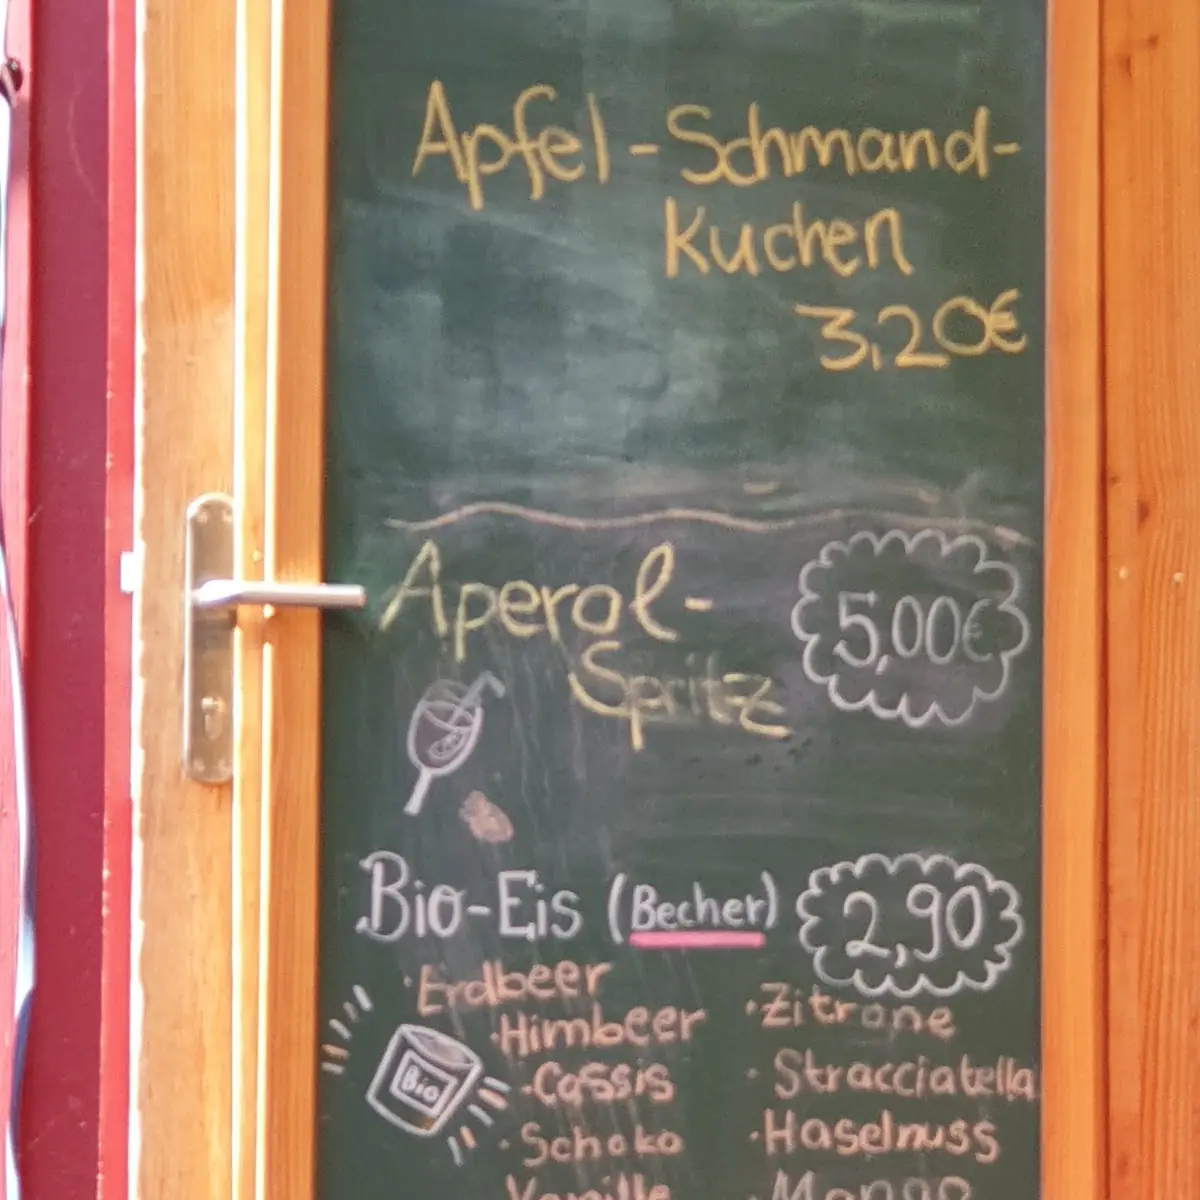 Apfel-Schmand-
Kuchen
3,20€
Aperol-
Spritz
5,00€
Bio-Eis (Becher)
2,90
·Erdbeer
·Himbeer
·Cassis
·Schoko
Vanille
·Zitrone
·Stracciatella
·Haselnuss
Mango
Bio